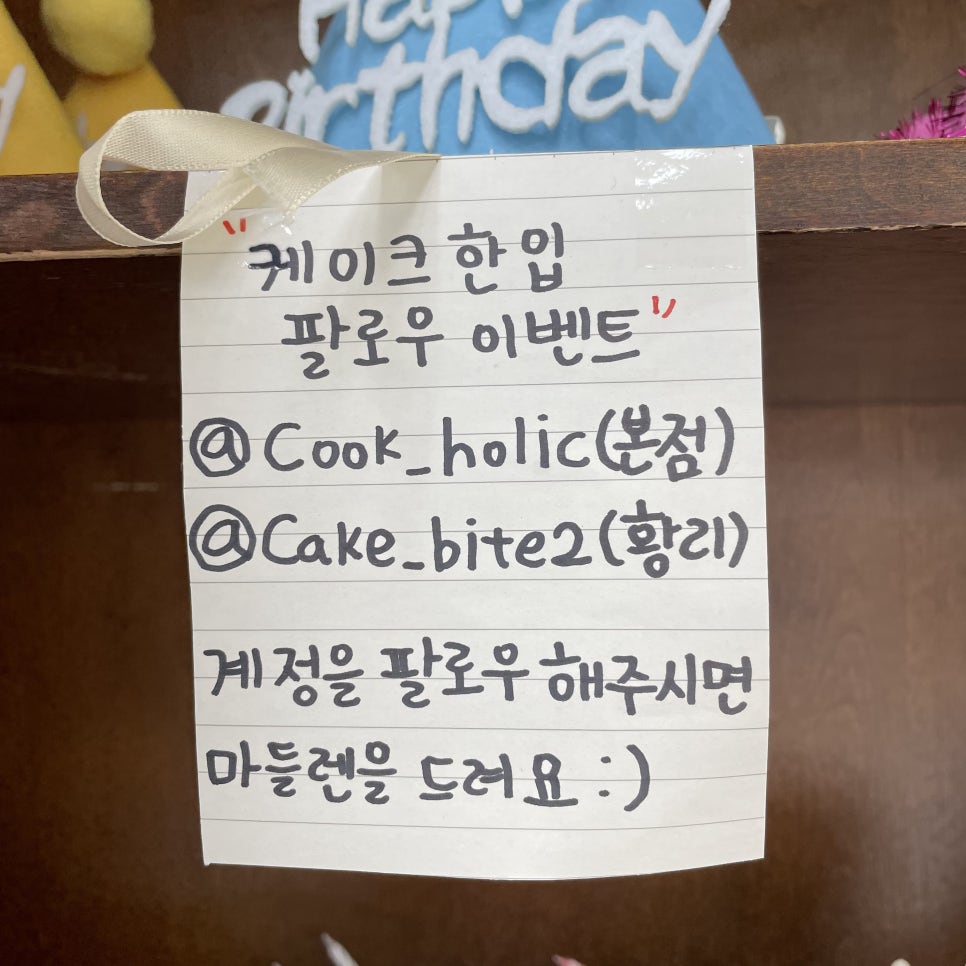 Happy
Birthday
"케이크 한입
팔로우 이벤트"
@Cook_holic(본점)
@Cake_bite2(황리)
계정을 팔로우해주시면
마들렌을 드려요 :)